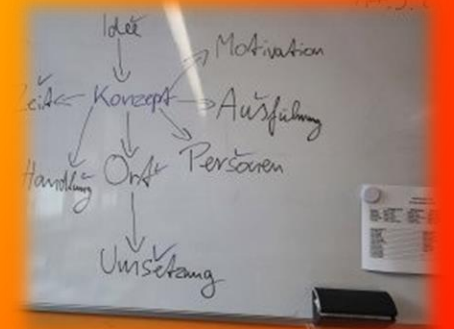 Idee
Motivation
Zeit Konzept Ausführung
Handlung Ort Personen
Umsetzung